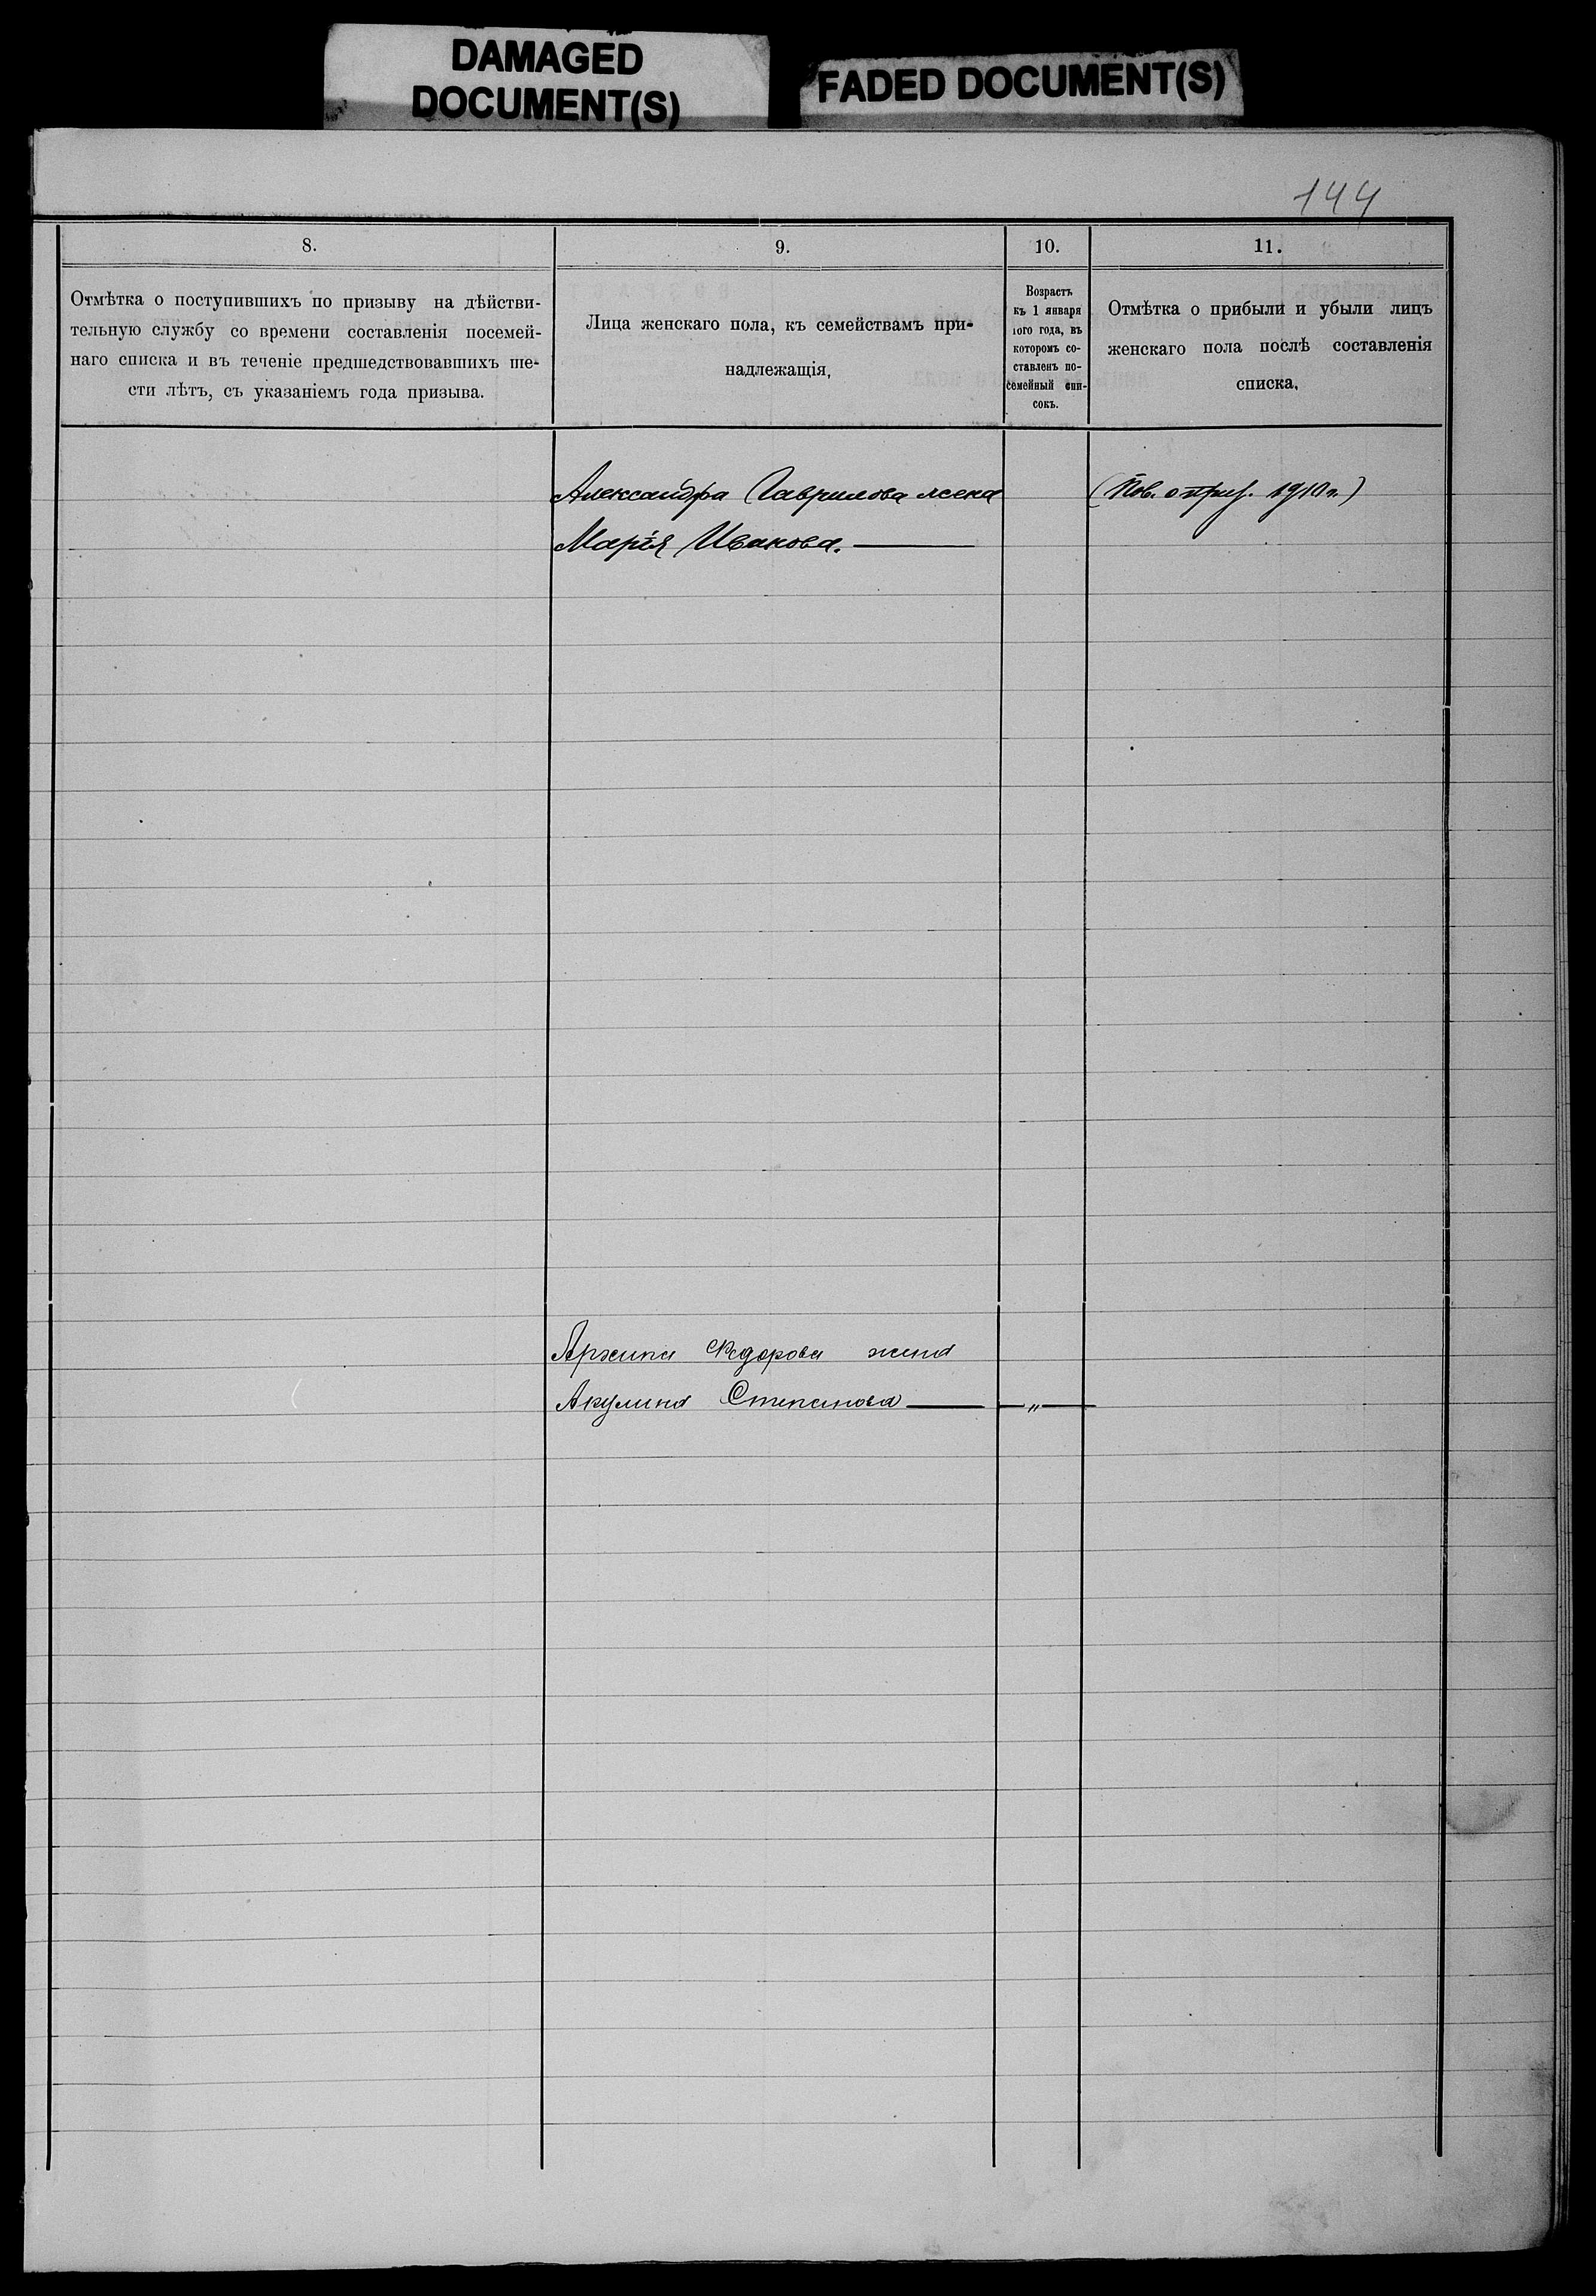 DAMAGED
DOCUMENT(S)
FADED DOCUMENT(S)
144
8.
Отмѣтка о поступившихъ по призыву на дѣйстви-
тельную службу со времени составленія посемей-
наго списка и въ теченіе предшедствовавшихъ ше-
сти лѣтъ, съ указаніемъ года призыва.
9.
Лица женскаго пола, къ семействамъ при-
надлежащія,
10.
Возрастъ
къ 1 января
того года, въ
которомъ со-
ставленъ по-
семейный спи-
сокъ.
11.
Отмѣтка о прибыли и убыли лицъ
женскаго пола послѣ составленія
списка.
Александра Гаврилова жена
(Пов. о приз. 1910 г.)
Марія Иванова.
Архипа Федорова жена
Акулина Степанова — „ —